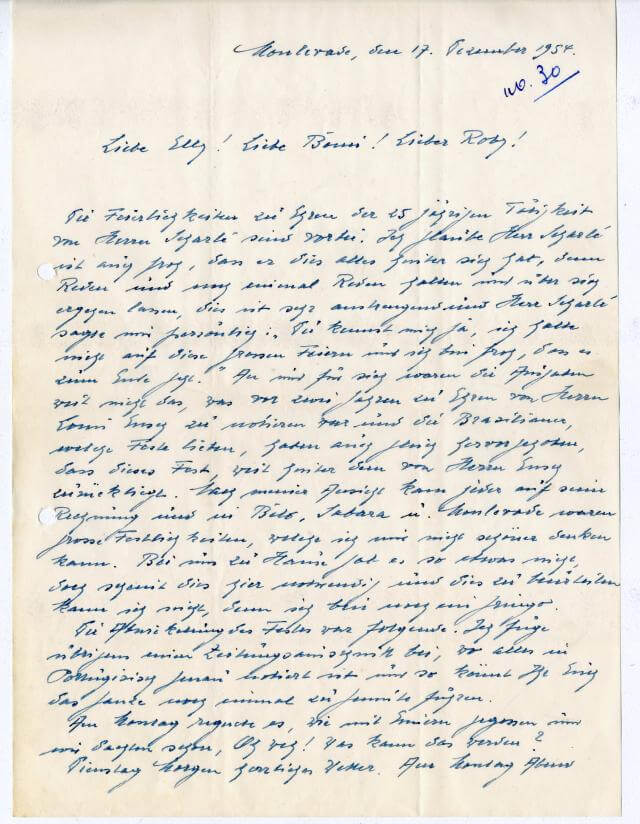 Monlevade, den 17. Dezember 1954.
no. 30
Liebe Elly! Liebe Bomi! Lieber Roby!
Die Feierlichkeiten zu Ehren der 25 jährigen Tätigkeit
von Herrn Scharlé sind vorbei. Ich glaube Herr Scharlé
ist auch froh, dass er dies alles hinter sich hat, denn
Reden und noch einmal Reden halten und über sich
ergehen lassen, dies ist sehr anstrengend und Herr Scharlé
sagte mir persönlich: „Du kennst mich ja, ich halte
nicht auf diese grossen Feiern und ich bin froh, dass es
zum Ende geht." An und für sich waren die Ausgaben
weit nicht das, was vor zwei Jahren zu Ehren von Herrn
Louis Ensch zu notieren war und die Brasilianer,
welche Feste lieben, haben auch gleich hervorgehoben,
dass dieses Fest, weit hinter dem von Herrn Ensch
zurückliegt. Nach meiner Ansicht kam jeder auf seine
Rechnung und in Belo, Sabara u. Monlevade waren
grosse Festlichkeiten, welche ich mir nicht schöner denken
kann. Bei uns zu Hause gab es so etwas nicht,
doch scheint dies hier notwendig und dies zu beurteilen
kann ich nicht, denn ich bin noch ein gringo.
Die Abwickelung des Festes war folgende. Ich füge
übrigens einen Zeitungsausschnitt bei, wo alles in
Portugisisch genau notiert ist und so könnt Ihr Euch
das ganze noch einmal zu Gemüte führen.
Am Montag regnete es, wie mit Eimern gegossen und
wir dachten schon, Oh weh! Was kann das werden?
Dienstag Morgen herrliches Wetter. Am Montag Abend